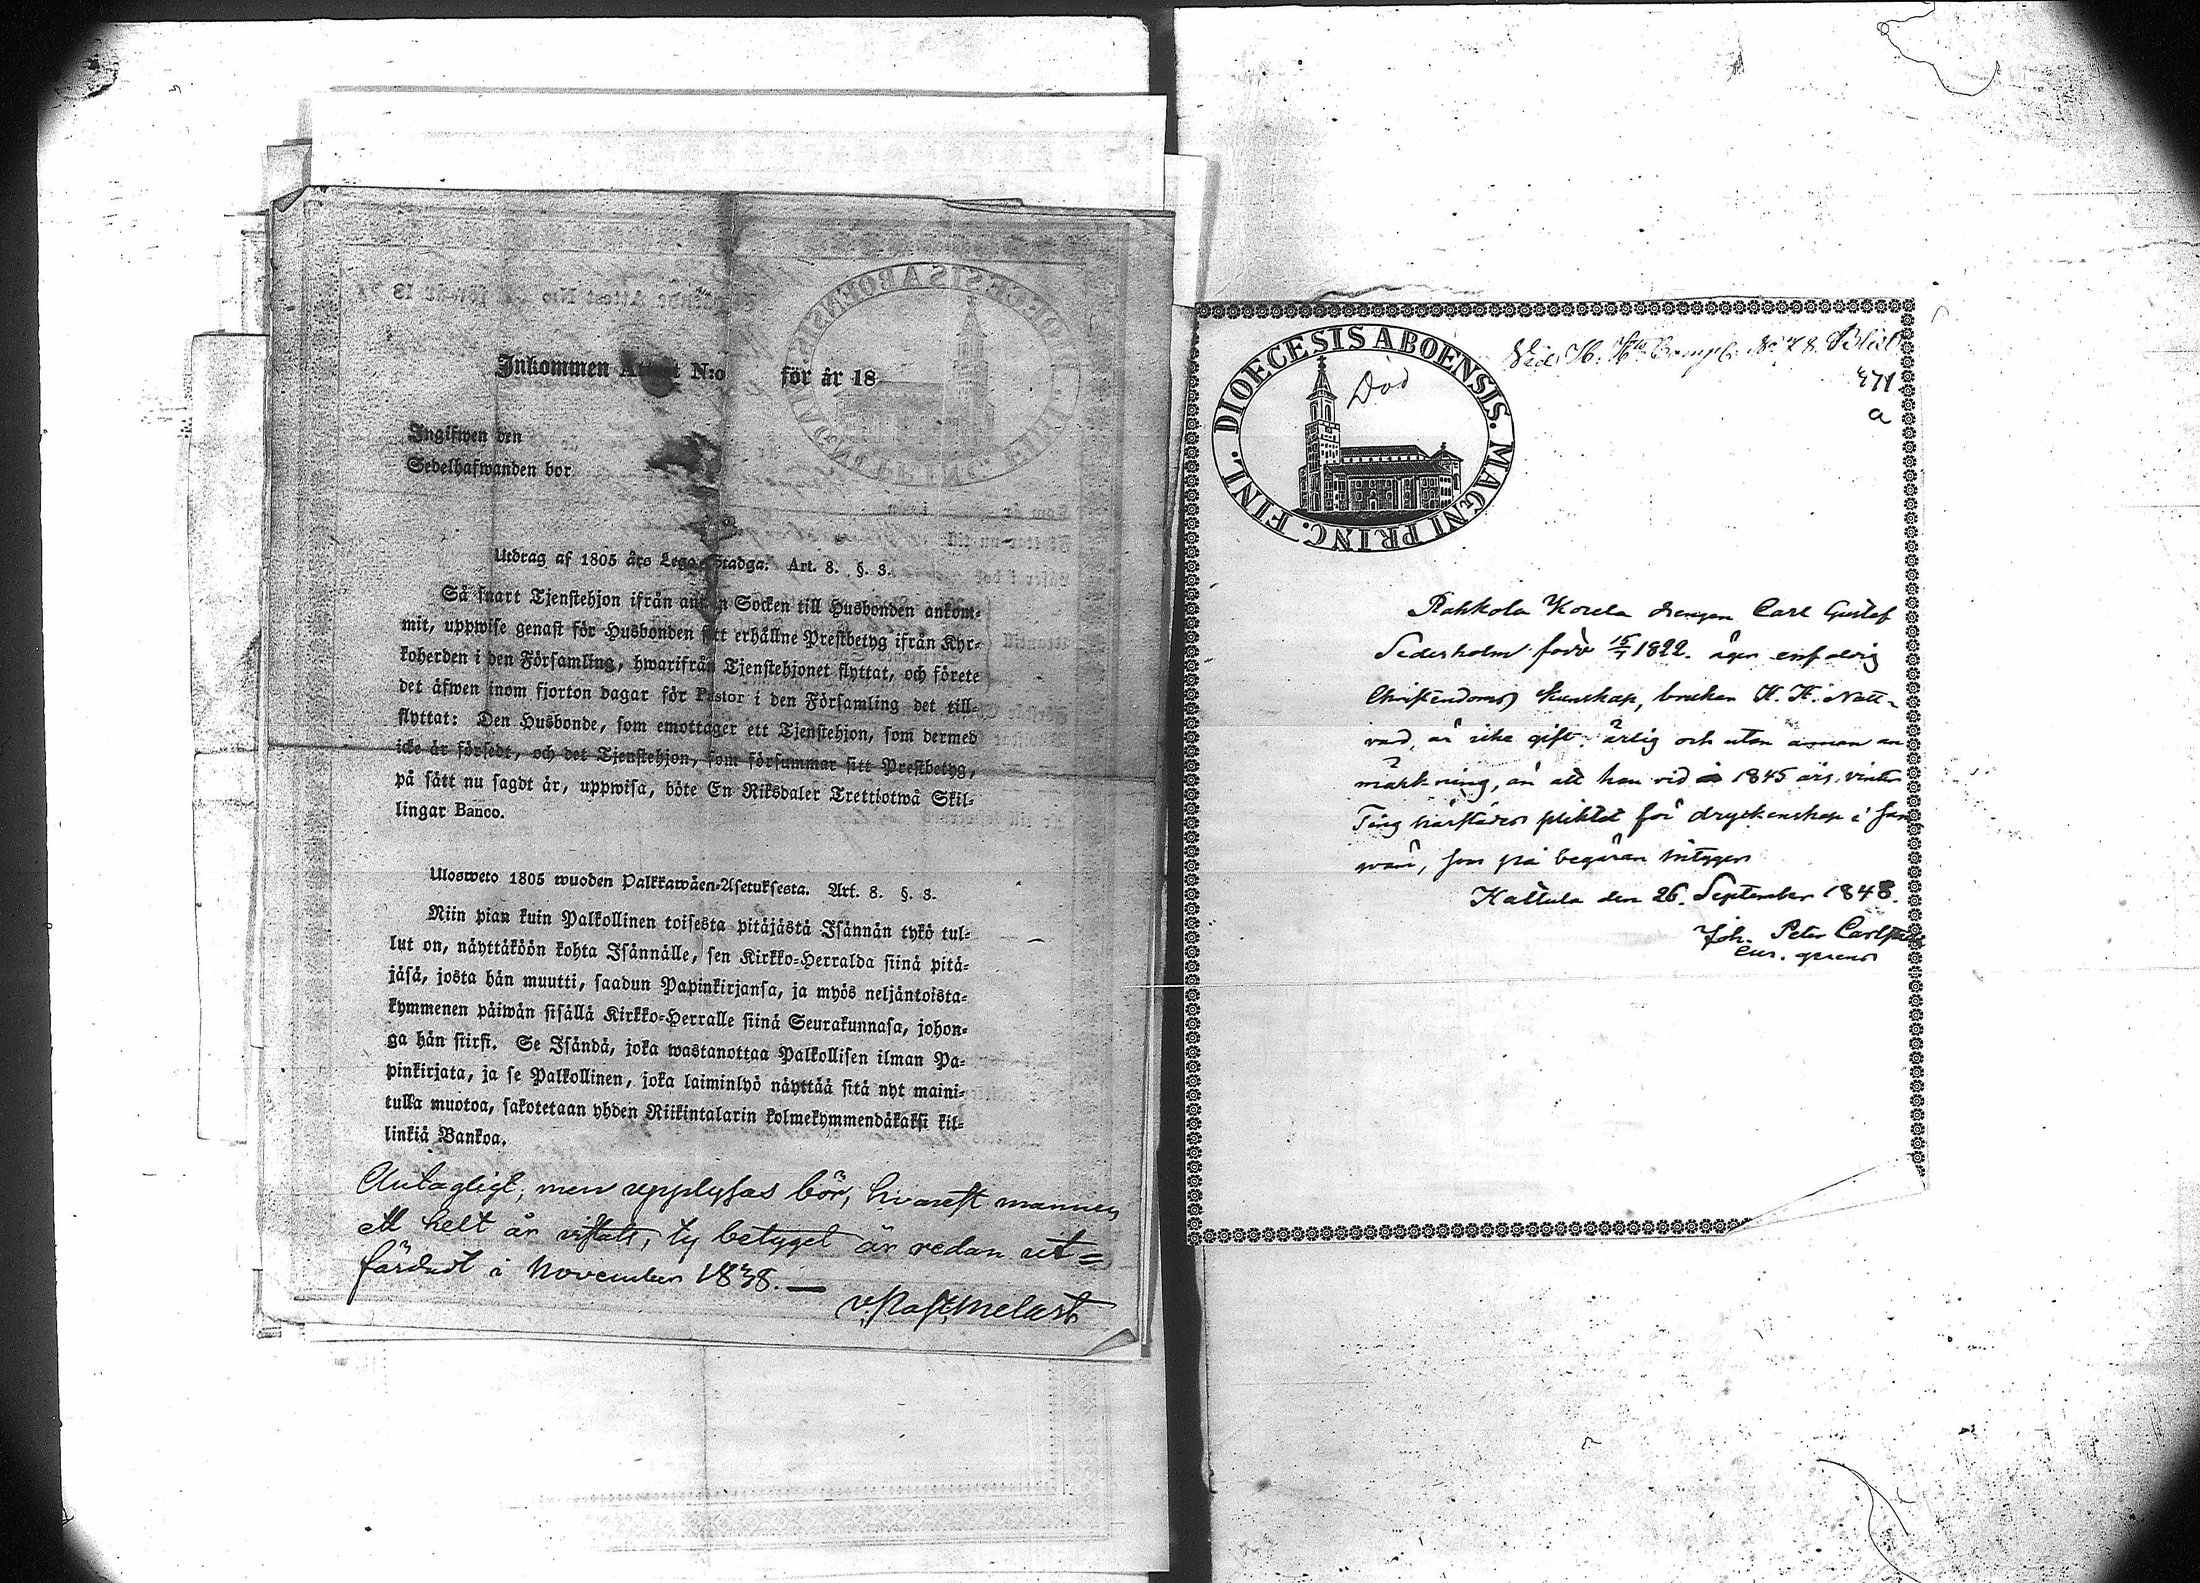 Inkommen Attest N:o för år 18
Ingifwen den
Sedelhafwanden bor
Utdrag af 1805 års Lego-Stadga. Art. 8. §. 3.
Så snart Tjenstehjon ifrån annan Socken till Husbonden ankom-
mit, uppwise genast för Husbonden sitt erhållne Prestbetyg ifrån Kyr-
koherden i den Församling, hwarifrån Tjenstehjonet flyttat, och förete
det äfwen inom fjorton dagar för Pastor i den Församling det till-
flyttat: Den Husbonde, som emottager ett Tjenstehjon, som dermed
icke är försedt, och det Tjenstehjon, som försummar sitt Prestbetyg,
på sätt nu sagdt är, uppwisa, böte En Riksdaler Trettiotwå Skil-
lingar Banco.
Ulosweto 1805 wuoden Palkkawäen-Asetuksesta. Art. 8. §. 3.
Niin pian kuin Palkollinen toisesta pitäjästä Isännän tykö tul-
lut on, näyttäköön kohta Isännälle, sen Kirkko-Herralda siinä pitä-
jäsä, josta hän muutti, saadun Papinkirjansa, ja myös neljäntoista-
kymmenen päiwän sisällä Kirkko-Herralle siinä Seurakunnasa, johon-
ga hän siirsi. Se Isändä, joka wastanottaa Palkollisen ilman Pa-
pinkirjata, ja se Palkollinen, joka laiminlyö näyttää sitä nyt maini-
tulla muotoa, sakotetaan yhden Riikintalarin kolmekymmendäkaksi kil-
linkiä Bankoa.
Antagligt; men upplysas bör, hvarest mannen
ett helt år vistats, ty betyget är redan ut=
färdadt i November 1838. —
v. Past. Melart
DIOECESIS ABOENSIS. MAGNI PRINC. FINL.
Död
No 78.
471
a
Rahkola drengen Carl Gustaf
Sederholm född 15/7 1822. äger enfaldig
Christendoms kunskap, brukar H. H. Natt-
vard, är icke gift, ärlig och utan annan an
märkning, än att han vid 1845 års vinter
Ting pliktat för dryckenskap i
som på begäran intygar
Hattula den 26. September 1848.
Joh. Peter
cur. gerens